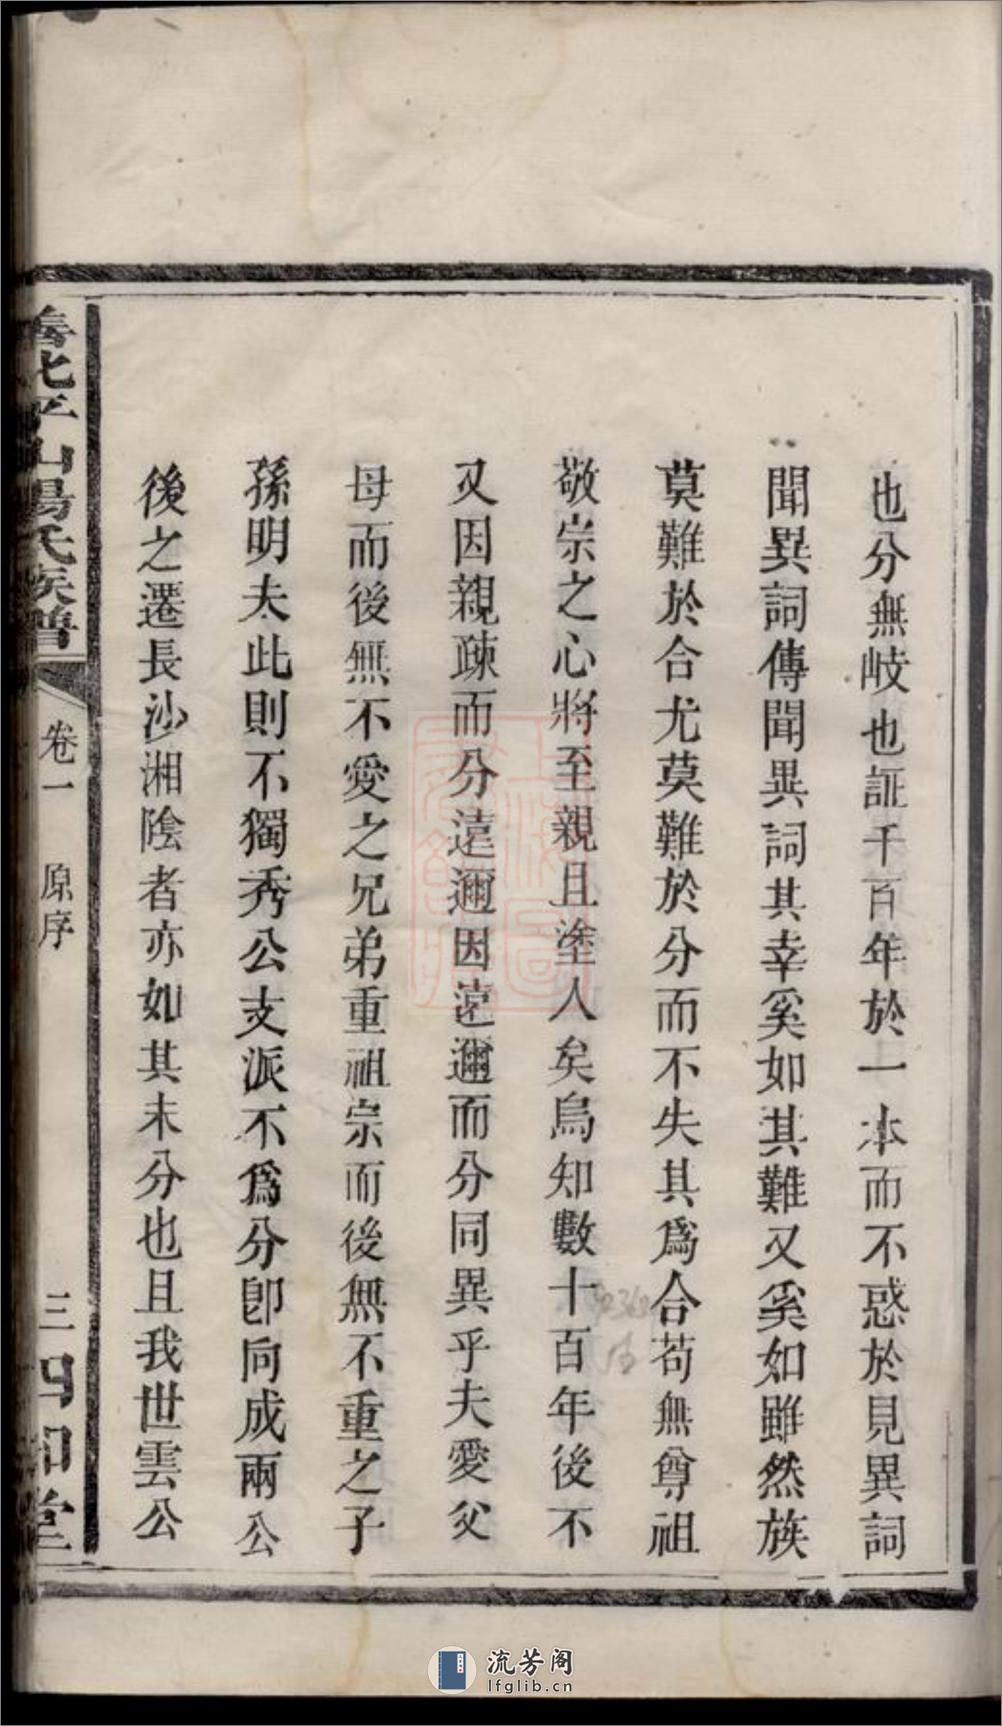 也分無岐也証千百年於一本而不惑於見異詞
聞異詞傳聞異詞其幸奚如其難又奚如雖然族
莫難於合尤莫難於分而不失其為合苟無尊祖
敬宗之心將至親且塗人矣烏知數十百年後不
又因親疎而分遠邇因遠邇而分同異乎夫愛父
母而後無不愛之兄弟重祖宗而後無不重之子
孫明夫此則不獨秀公支派不為分卽向成兩公
後之遷長沙湘陰者亦如其未分也且我世雲公
善化平山湯氏族譜
卷一
原序
三
四知堂
流芳阁
lfglib.cn